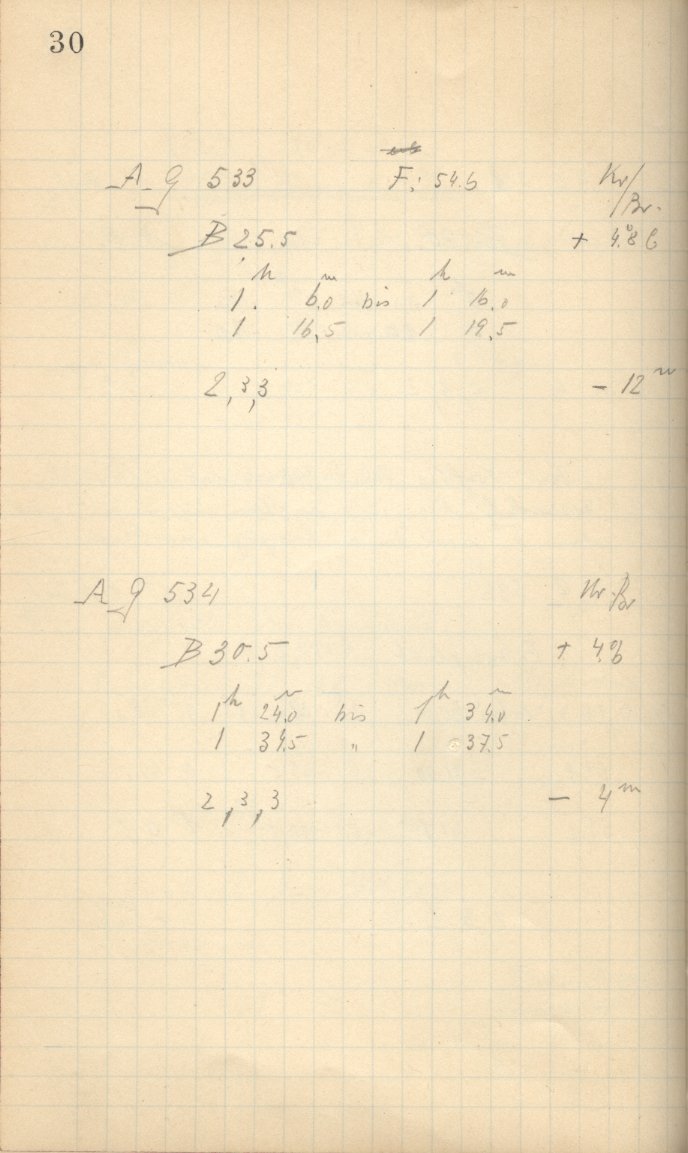 30
A G 533 F: 54.6 Kr/Br.
B 25.5 + 4°.8
h m h m
1. 6.0 bis 1 16.0
1 16.5 1 19.5
2, 3, 3 - 12 m
A G 534 Kr. Br
B 30.5 + 4°.6
1h 24.0m bis 1h 34.0m
1 34.5 " 1 37.5
2, 3, 3 - 4 m